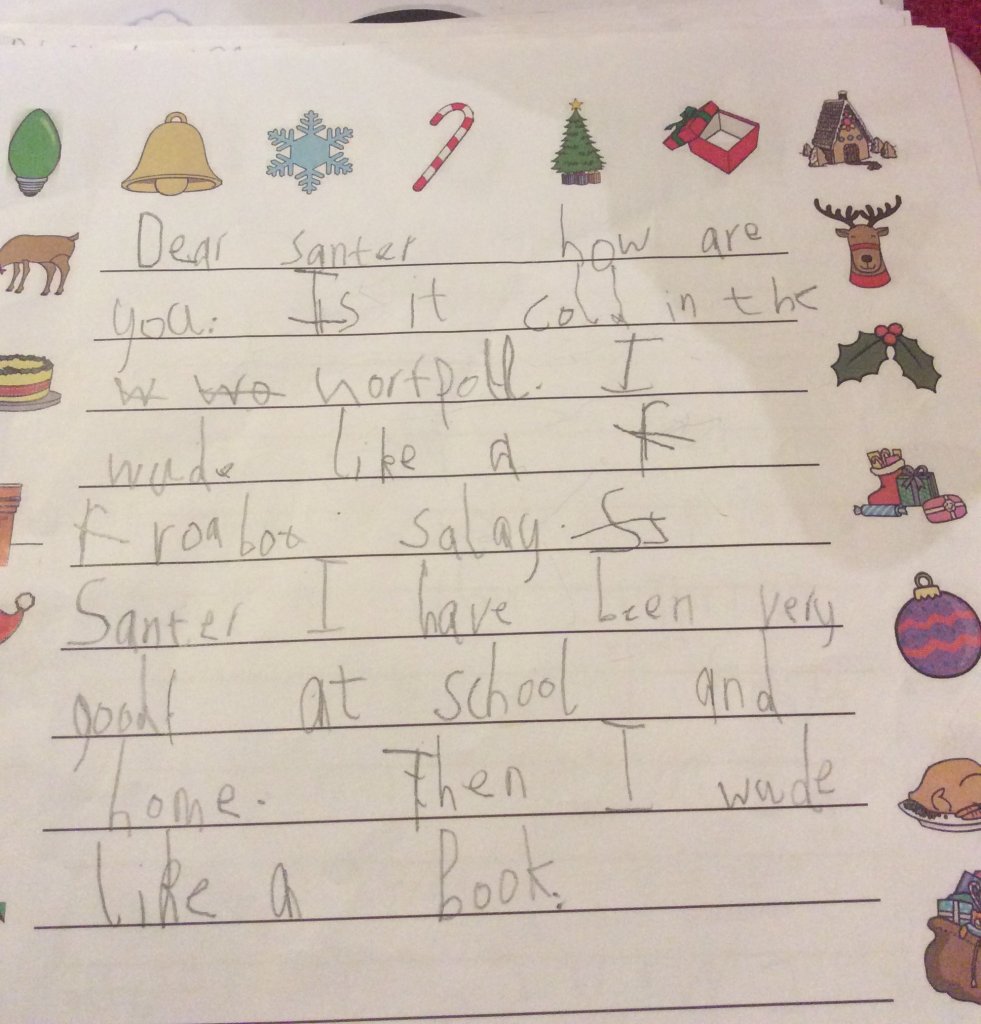 Dear santer how are
you. Is it cold in the
w wo nortpoll. I
wude like a f
f roabot salay. Ss
Santer I have been very
good at school and
home. Then I wude
like a book.